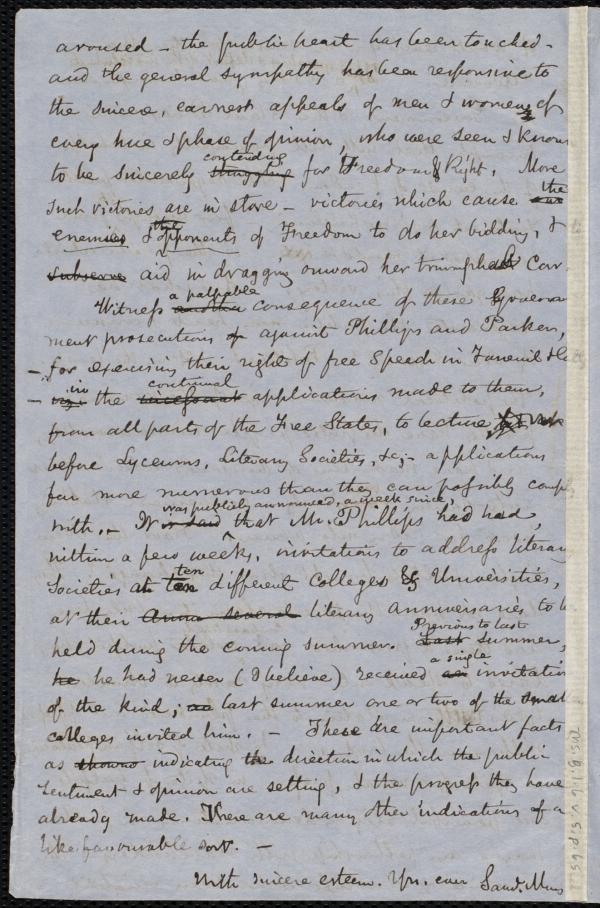 aroused – the public heart has been touched –
and the general sympathy has been responsive to
the sincere, earnest appeals of men & women of
every hue & phase of opinion, who were seen & know
to be sincerely struggling contending for Freedom & Right. More
such victories are in store – victories which cause our the
enemies & the opponents of Freedom to do her bidding, &
subserve aid in dragging onward her triumphal Car.
Witness another a palpable consequence of these Govern
ment prosecutions of against Phillips and Parker,
– for exercising their right of free Speech in Faneuil Ha
– in the incessant continual applications made to them,
from all parts of the Free States, to lecture
before Lyceums, Literary Societies, &c; – applications
far more numerous than they can possibly comp
with. – It is said was publicly announced, a week since, that Mr. Phillips had had,
within a few weeks, invitations to address literary
Societies at ten ten different Colleges & Universities,
at their Annu several literary anniversaries to b
held during the coming summer. Last Previous to last summer,
he he had never (I believe) received an a single invitation
of the kind; last summer one or two of the small
colleges invited him. – These are important facts
as shown indicating the direction in which the public
sentiment & opinion are setting, & the progress they have
already made. There are many other indications of a
like favourable sort. –
With sincere esteem. Yrs. ever Saml. May